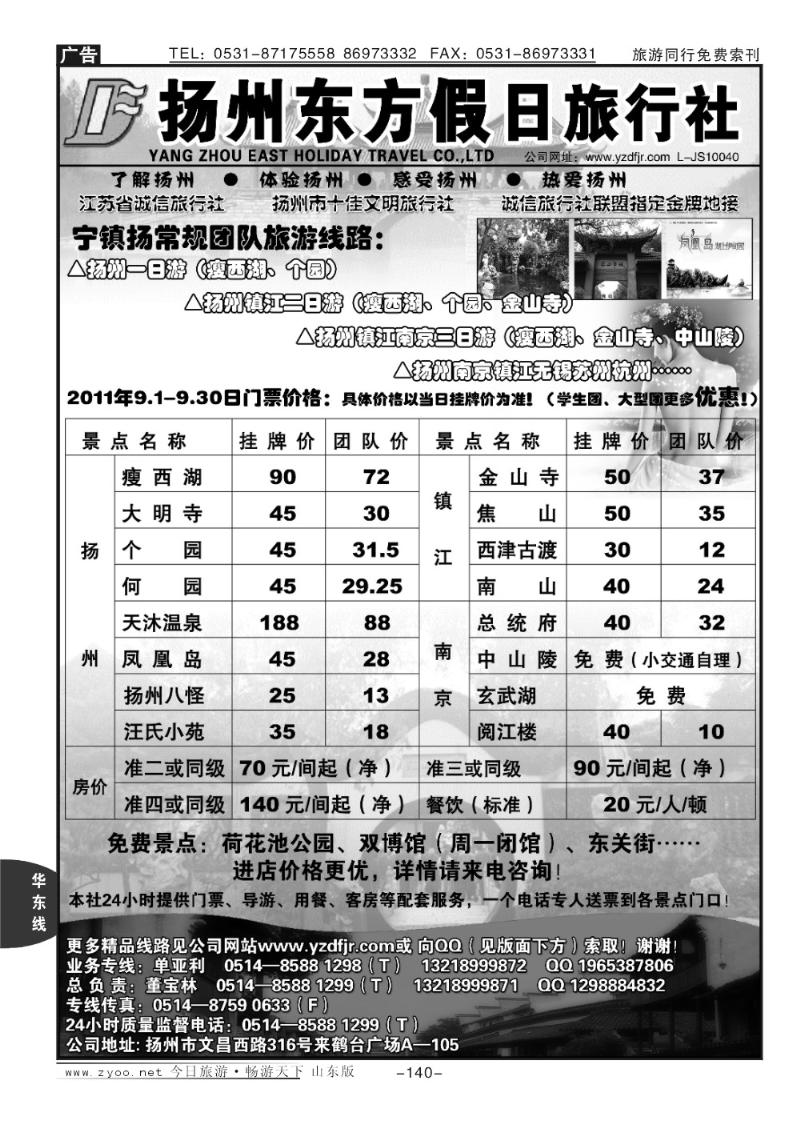 广告
TEL: 0531-87175558 86973332 FAX: 0531-86973331 旅游同行免费索刊
扬州东方假日旅行社
YANG ZHOU EAST HOLIDAY TRAVEL CO.,LTD 公司网址: www.yzdfjr.com L-JS10040
了解扬州 ● 体验扬州 ● 感受扬州 ● 热爱扬州
江苏省诚信旅行社 扬州市十佳文明旅行社 诚信旅行社联盟指定金牌地接
宁镇扬常规团队旅游线路:
凤凰岛
△扬州一日游(瘦西湖、个园)
△扬州镇江二日游(瘦西湖、个园、金山寺)
△扬州镇江南京三日游(瘦西湖、金山寺、中山陵)
△扬州南京镇江无锡苏州杭州……
2011年9.1-9.30日门票价格: 具体价格以当日挂牌价为准!(学生团、大型团更多优惠!)
景点名称 挂牌价 团队价 景点名称 挂牌价 团队价
扬州 瘦西湖 90 72 镇江 金山寺 50 37
大明寺 45 30 焦山 50 35
个园 45 31.5 西津古渡 30 12
何园 45 29.25 南山 40 24
天沐温泉 188 88 南京 总统府 40 32
凤凰岛 45 28 中山陵 免费(小交通自理)
扬州八怪 25 13 玄武湖 免费
汪氏小苑 35 18 阅江楼 40 10
房价 准二或同级 70元/间起(净) 准三或同级 90元/间起(净)
准四或同级 140元/间起(净) 餐饮(标准) 20元/人/顿
免费景点: 荷花池公园、双博馆(周一闭馆)、东关街……
进店价格更优, 详情请来电咨询!
本社24小时提供门票、导游、用餐、客房等配套服务, 一个电话专人送票到各景点门口!
华东线
更多精品线路见公司网站www.yzdfjr.com或 向QQ(见版面下方)索取! 谢谢!
业务专线: 单亚利 0514—8588 1298(T) 13218999872 QQ 1965387806
总负责: 董宝林 0514—8588 1299(T) 13218999871 QQ 1298884832
专线传真: 0514—8759 0633(F)
24小时质量监督电话: 0514—8588 1299(T)
公司地址: 扬州市文昌西路316号来鹤台广场A—105
www.zyoo.net 今日旅游·畅游天下 山东版 -140-